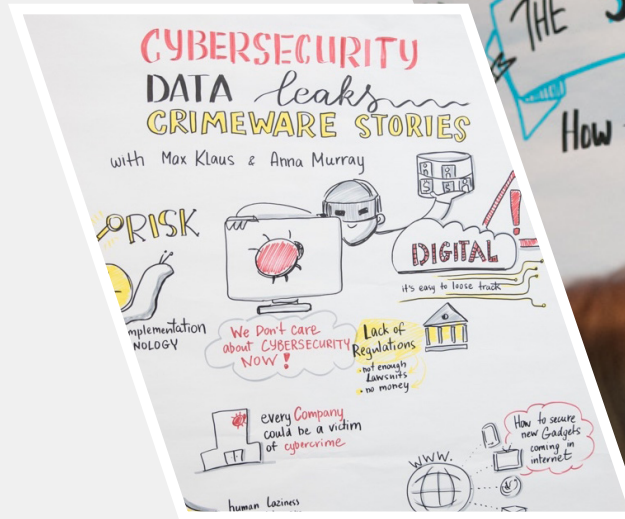 CYBERSECURITY
DATA leaks
CRIMEWARE STORIES
with Max Klaus & Anna Murray
RISK
DIGITAL
it's easy to loose track
mplementation
NOLOGY
We Don't care
about CYBERSECURITY
NOW!
Lack of
Regulations
• not enough
Lawsuits
• no money
every Company
could be a victim
of cybercrime
WWW.
How to secure
new Gadgets
coming in
internet
human Laziness
THE
How